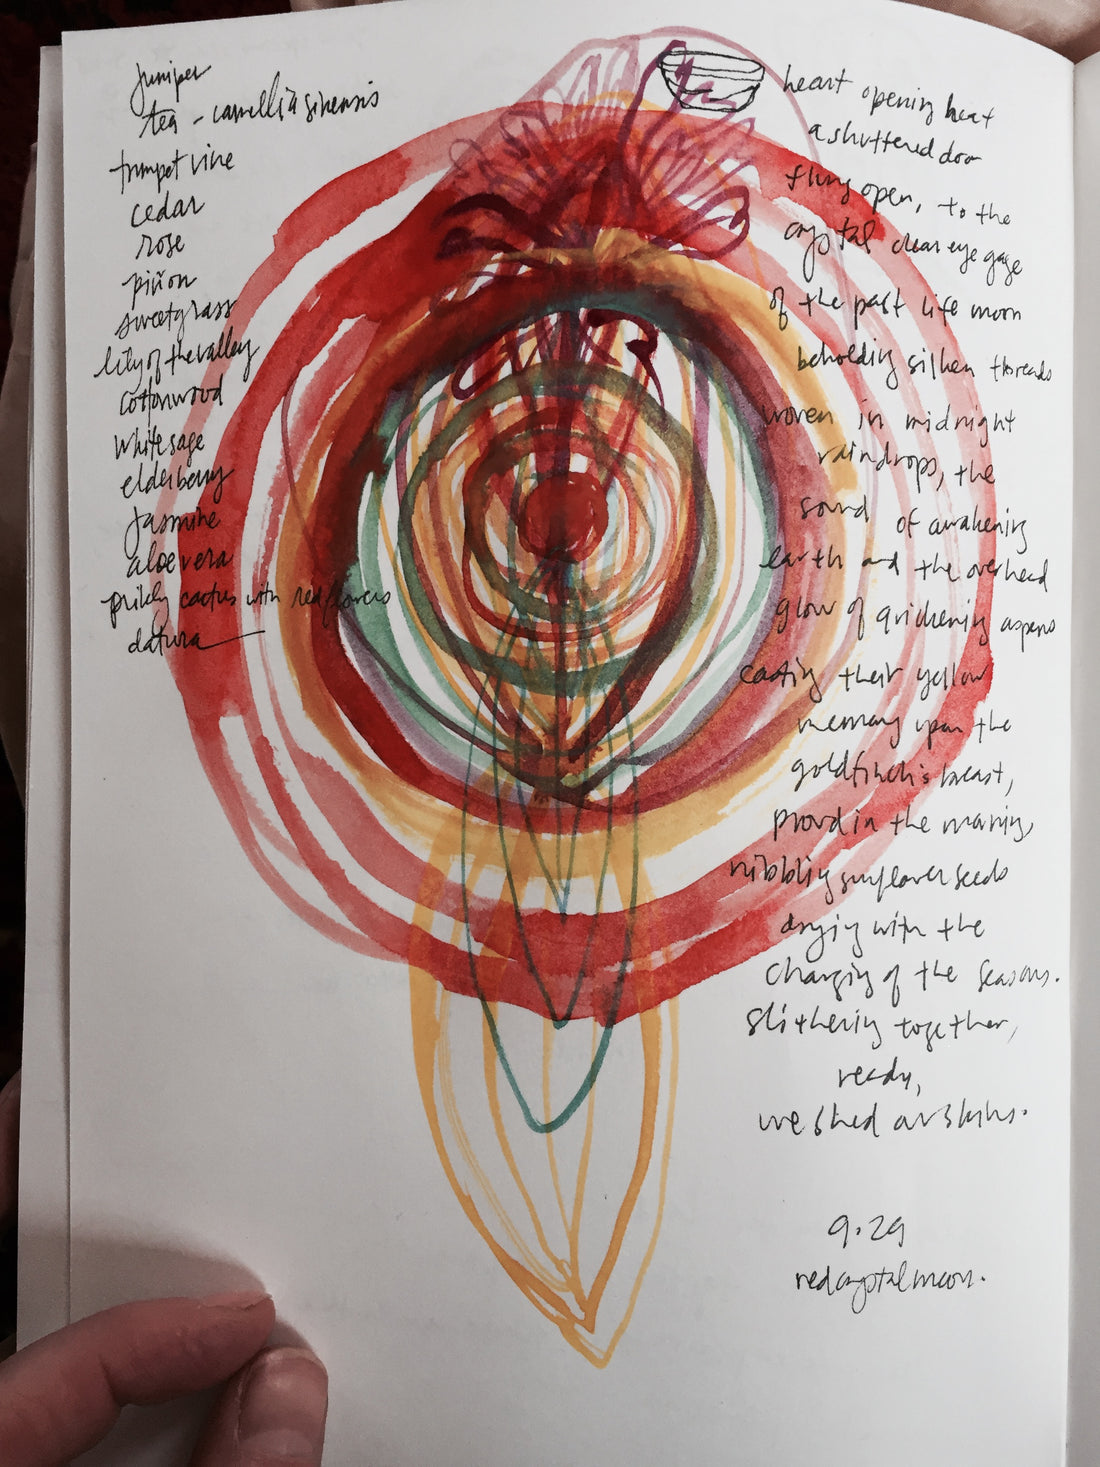 juniper
tea - camellia sinensis
trumpet vine
cedar
rose
piñon
sweetgrass
lily of the valley
cottonwood
white sage
elderberry
jasmine
aloe vera
prikly cactus with red flowers
datura
heart opening heat
a shuttered door
flung open, to the
crystal clear eye gaze
of the past life moon
beholding silken threads
woven in midnight
raindrops, the
sound of awakening
earth and the overhead
glow of quickening aspens
casting their yellow
memory upon the
goldfinch's breast,
proud in the morning,
nibbling sunflower seeds
drying with the
changing of the seasons.
slithering together,
ready,
we shed our skins.
9.29
red crystal moon.